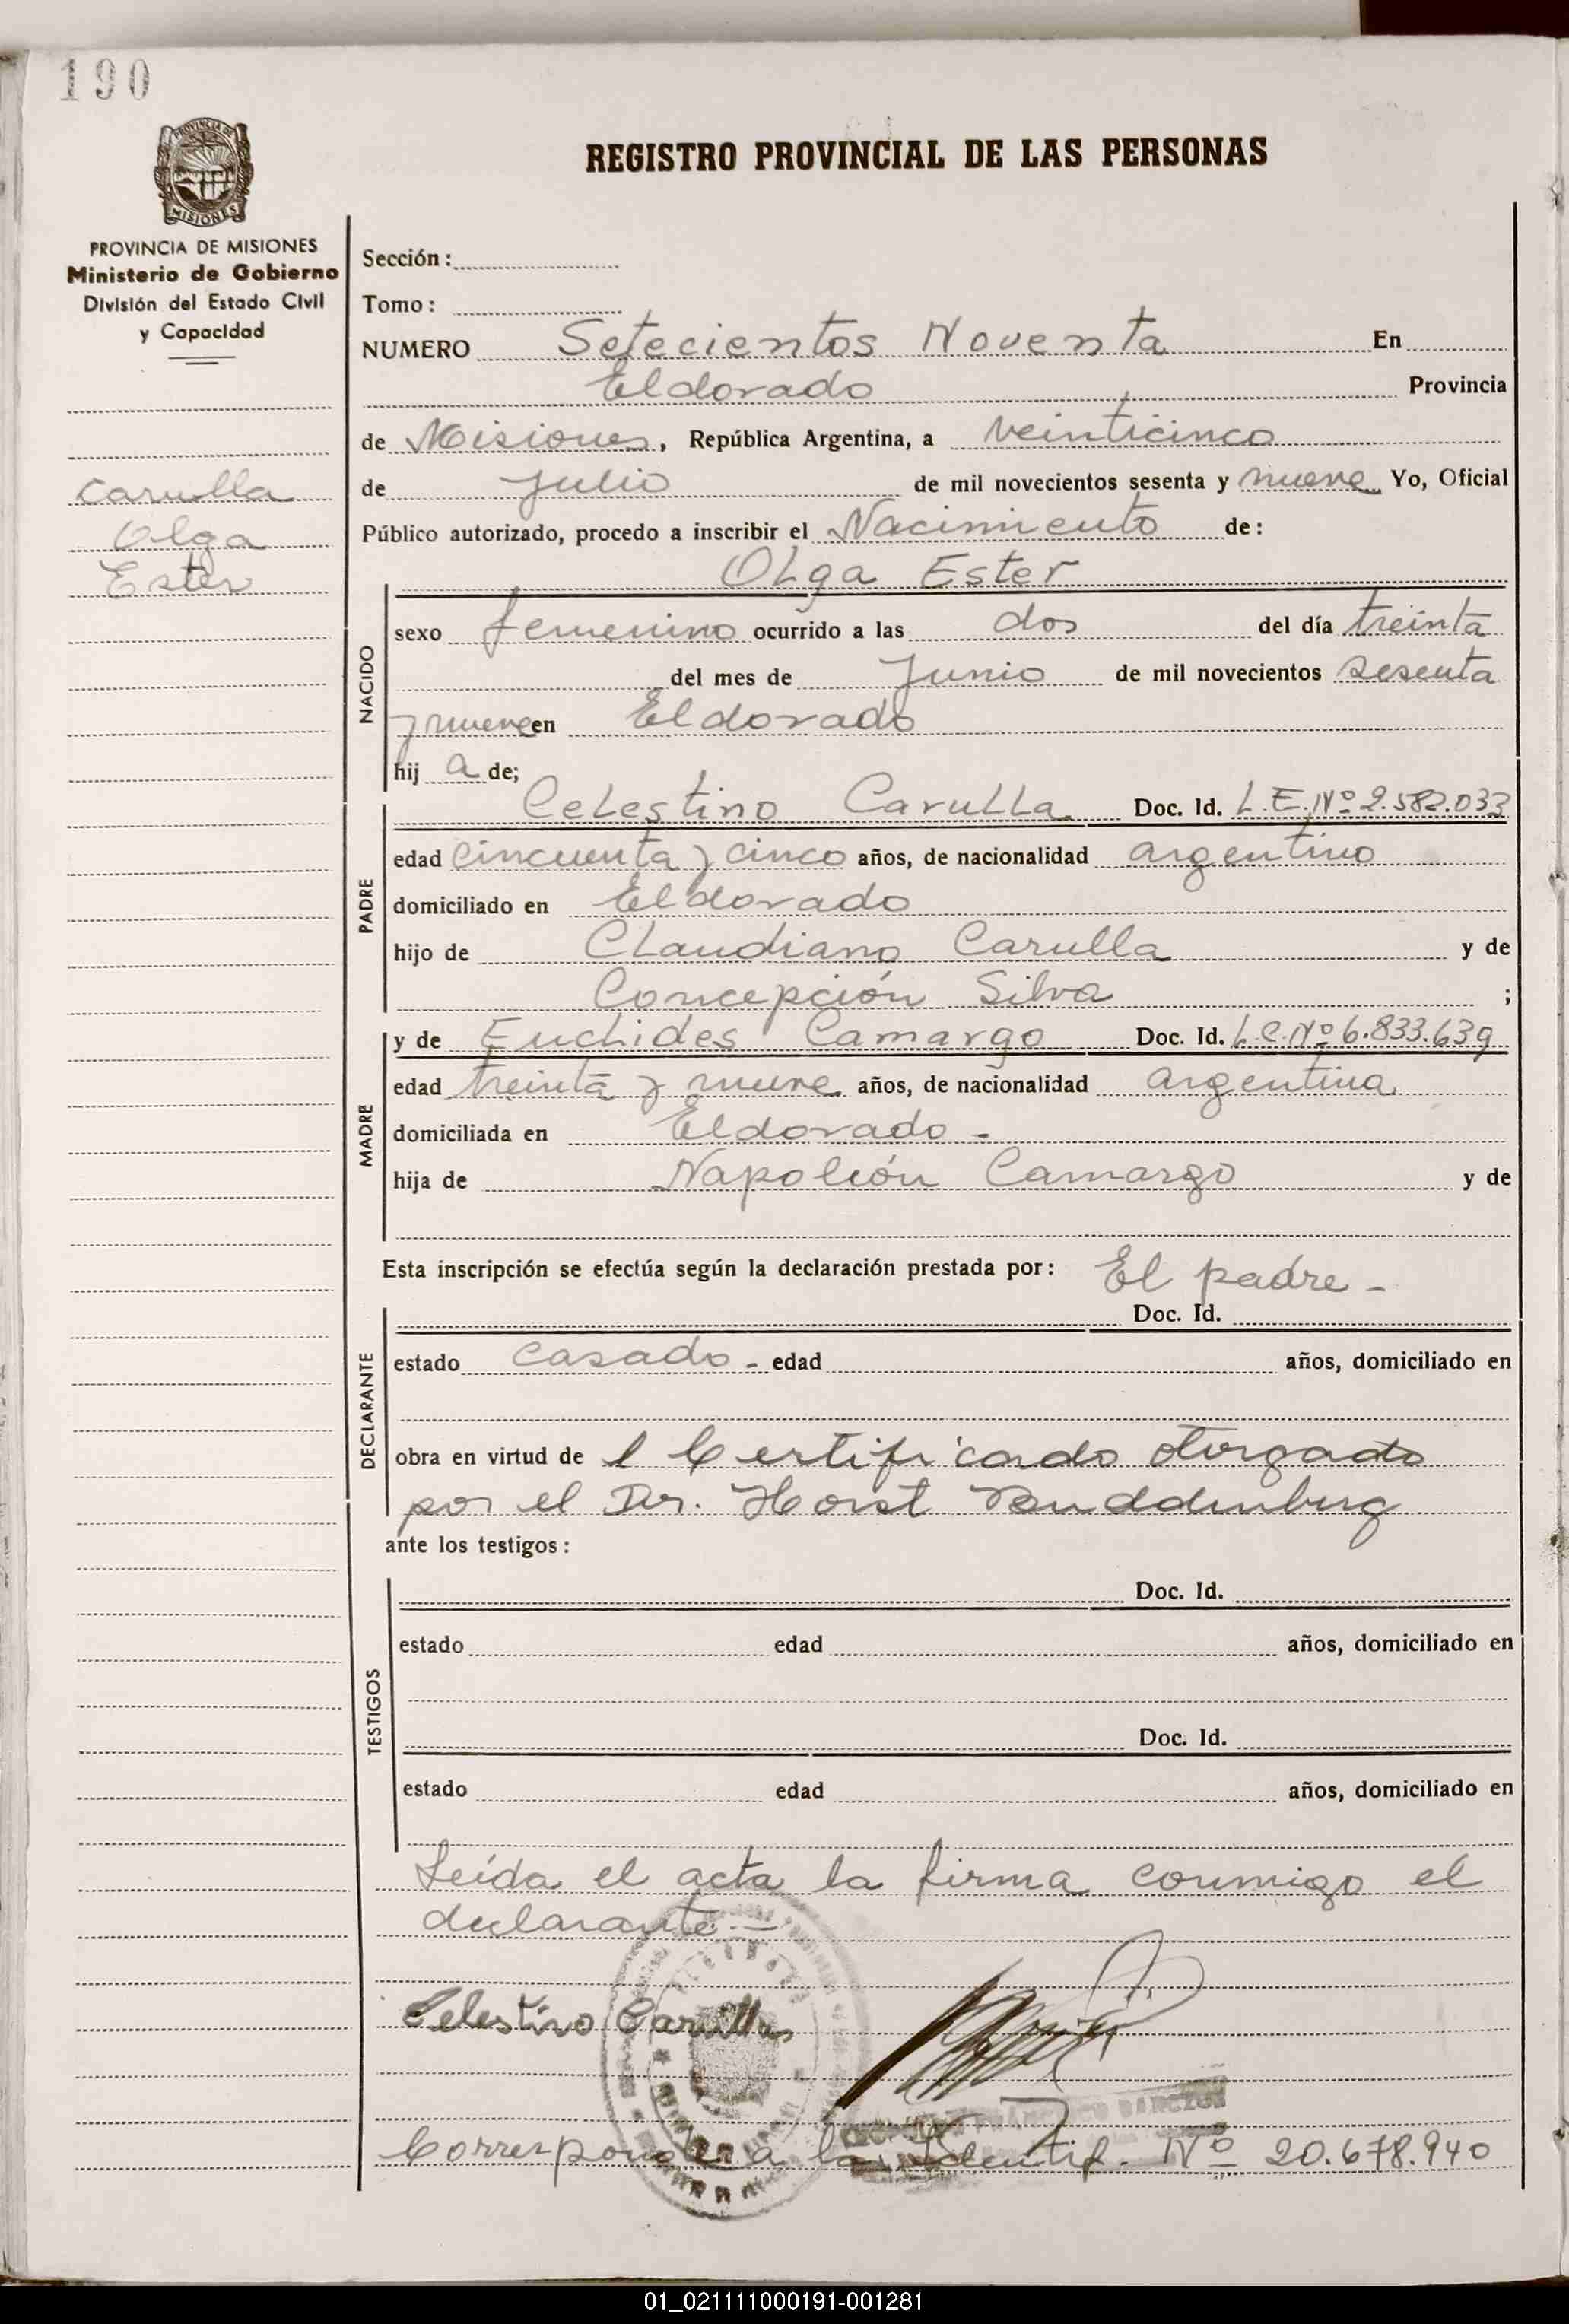 190
PROVINCIA DE
MISIONES
REGISTRO PROVINCIAL DE LAS PERSONAS
PROVINCIA DE MISIONES
Ministerio de Gobierno
División del Estado Civil
y Capacidad
Carulla
Olga
Ester
Sección :
Tomo :
NUMERO Setecientos Noventa En
Eldorado Provincia
de Misiones, República Argentina, a veinticinco
de Julio de mil novecientos sesenta y nueve Yo, Oficial
Público autorizado, procedo a inscribir el Nacimiento de :
Olga Ester
NACIDO
sexo femenino ocurrido a las dos del día treinta
del mes de Junio de mil novecientos sesenta
y nueve en Eldorado
hij a de;
PADRE
Celestino Carulla Doc. Id. L.E. Nº 2.582.033
edad cincuenta y cinco años, de nacionalidad argentino
domiciliado en Eldorado
hijo de Claudiano Carulla y de
Concepción Silva ;
MADRE
y de Euclides Camargo Doc. Id. L.C. Nº 6.833.639
edad treinta y nueve años, de nacionalidad argentina
domiciliada en Eldorado -
hija de Napoleón Camargo y de
Esta inscripción se efectúa según la declaración prestada por : El padre -
DECLARANTE
Doc. Id.
estado casado - edad años, domiciliado en
obra en virtud de l Certificado otorgado
por el Dr. Horst
ante los testigos :
TESTIGOS
Doc. Id.
estado edad años, domiciliado en
Doc. Id.
estado edad años, domiciliado en
Leída el acta la firma conmigo el
declarante. -
Celestino Carulla
Corresponde a la Identif. Nº 20.678.940
01_021111000191-001281